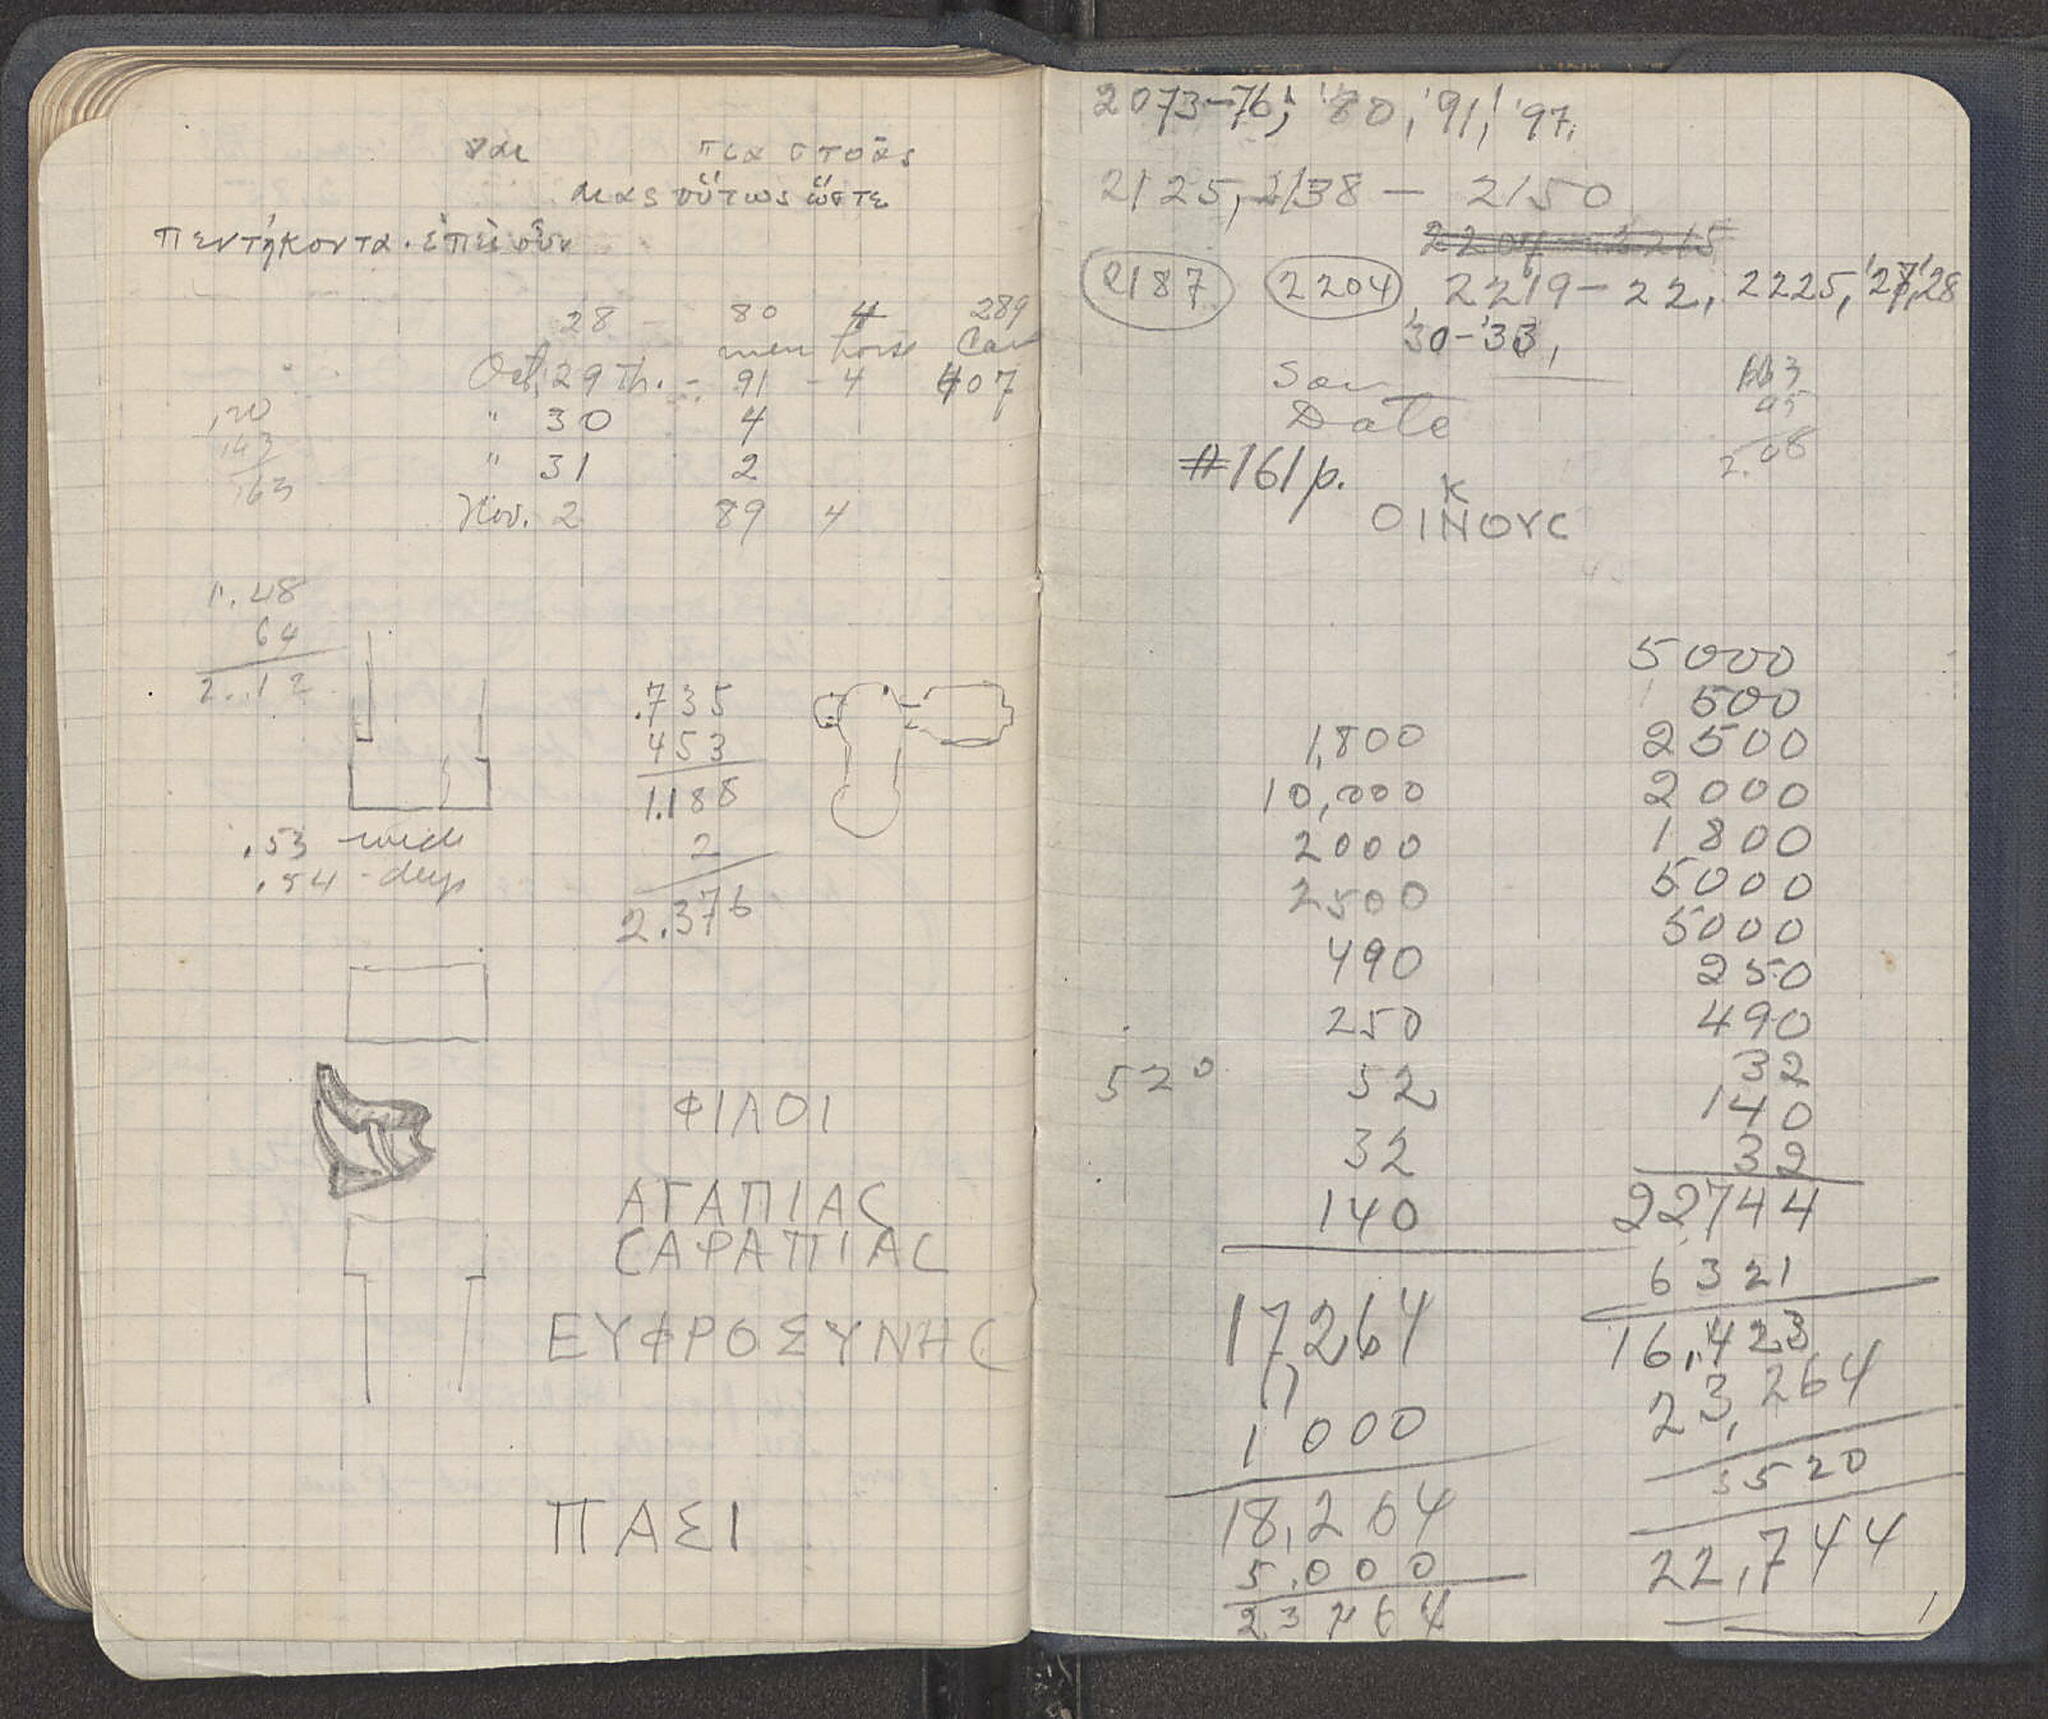 και πια στοᾶς
μας οὕτως ὥστε
πεντήκοντα. ἐπεὶ οὖν
28 - 80 4 289
men horse Car
Oct. 29 Th. - 91 - 4 407
" 30 4
" 31 2
Nov. 2 89 4
.20
.43
.63
1.48
64
2.12
.735
453
1.188
2
2.376
.53 wide
.54 - deep
ΦΙΛΟΙ
ΑΓΑΠΙΑϹ
ϹΑΡΑΠΙΑϹ
ΕΥΦΡΟΣΥΝΗϹ
ΠΑΣΙ
2073-76, '80, '91, '97,
2125, 2138 - 2150
2187 2204 2219-22, 2225, '27, '28
'30-'33,
Date
95
2.08
#161 p.
Κ
ΟΙΝΟΥϹ
1,800
10,000
2000
2500
490
250
520 52
32
140
17,264
1000
18,264
5,000
23264
5000
500
2500
2000
1800
5000
5000
250
490
32
140
32
22744
6321
16,423
23,264
520
22,744